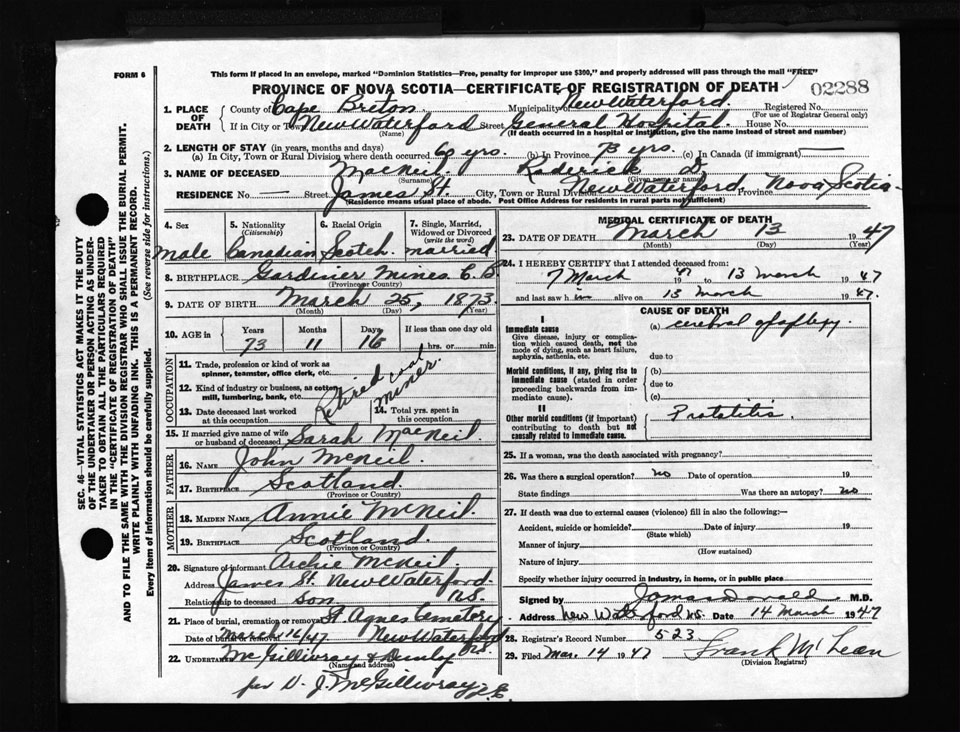 FORM 6
This form if placed in an envelope, marked "Dominion Statistics—Free, penalty for improper use $300," and properly addressed will pass through the mail "FREE"
PROVINCE OF NOVA SCOTIA—CERTIFICATE OF REGISTRATION OF DEATH
02288
1. PLACE OF DEATH
County of Cape Breton Municipality of New Waterford Registered No.
(For use of Registrar General only)
If in City or Town New Waterford Street General Hospital. House No.
(Name) (If death occurred in a hospital or institution, give the name instead of street and number)
2. LENGTH OF STAY (in years, months and days)
(a) In City, Town or Rural Division where death occurred yrs. (b) In Province 73 yrs. (c) In Canada (if immigrant) —
3. NAME OF DECEASED MacNeil, Roderick D.
(Surname) (Given name or names)
RESIDENCE No. — Street James St. City, Town or Rural Division New Waterford Province Nova Scotia
(Residence means usual place of abode. Post Office Address for residents in rural parts not sufficient)
4. Sex 5. Nationality (Citizenship) 6. Racial Origin 7. Single, Married, Widowed or Divorced (write the word)
Male Canadian Scotch. married
8. BIRTHPLACE Gardiner Mines C. B.
(Province or Country)
9. DATE OF BIRTH March 25, 1873.
(Month) (Day) (Year)
10. AGE in Years Months Days If less than one day old
73 11 16 hrs. or min.
OCCUPATION
11. Trade, profession or kind of work as spinner, teamster, office clerk, etc.
12. Kind of industry or business, as cotton mill, lumbering, bank, etc.
Retired coal miner.
13. Date deceased last worked at this occupation
14. Total yrs. spent in this occupation
15. If married give name of wife or husband of deceased Sarah MacNeil.
FATHER
16. NAME John McNeil.
17. BIRTHPLACE Scotland.
(Province or Country)
MOTHER
18. MAIDEN NAME Annie McNeil.
19. BIRTHPLACE Scotland.
(Province or Country)
20. Signature of informant Archie McNeil.
Address James St. New Waterford. N.S.
Relationship to deceased son.
21. Place of burial, cremation or removal St. Agnes Cemetery
Date of burial or removal March 16/47 New Waterford N.S.
22. Undertaker McGillivray & Dunlop
(Name and address)
per D. J. McGillivray
MEDICAL CERTIFICATE OF DEATH
23. DATE OF DEATH March 13 1947
(Month) (Day) (Year)
24. I HEREBY CERTIFY that I attended deceased from:
7 March 47 to 13 march 1947
and last saw him alive on 13 march 1947.
CAUSE OF DEATH
I
Immediate cause
Give disease, injury or complication which caused death, not the mode of dying, such as heart failure, asphyxia, asthenia, etc.
(a) cerebral apoplexy.
due to
Morbid conditions, if any, giving rise to immediate cause (stated in order proceeding backwards from immediate cause).
(b)
due to
(c)
II
Other morbid conditions (if important) contributing to death but not causally related to immediate cause.
25. If a woman, was the death associated with pregnancy?
26. Was there a surgical operation? no Date of operation 19
State findings Was there an autopsy? no
27. If death was due to external causes (violence) fill in also the following:—
Accident, suicide or homicide? Date of injury 19
(State which)
Manner of injury
(How sustained)
Nature of injury
Specify whether injury occurred in industry, in home, or in public place
Signed by M.D.
Address New Waterford N.S. Date 14 March 1947
28. Registrar's Record Number 523
29. Filed Mar. 14 1947 Frank McLean
(Division Registrar)
SEC. 46—VITAL STATISTICS ACT MAKES IT THE DUTY
OF THE UNDERTAKER OR PERSON ACTING AS UNDER-
TAKER TO OBTAIN ALL THE PARTICULARS REQUIRED
IN THE "CERTIFICATE OF REGISTRATION OF DEATH"
AND TO FILE THE SAME WITH THE DIVISION REGISTRAR WHO SHALL ISSUE THE BURIAL PERMIT.
WRITE PLAINLY WITH UNFADING INK. THIS IS A PERMANENT RECORD.
Every item of information should be carefully supplied. (See reverse side for instructions.)